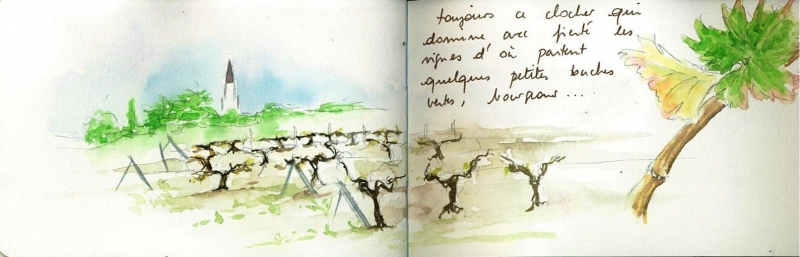 toujours ce clocher qui
domine avec fierté les
vignes d'où partent
quelques petites touches
vertes, bourgeons ...